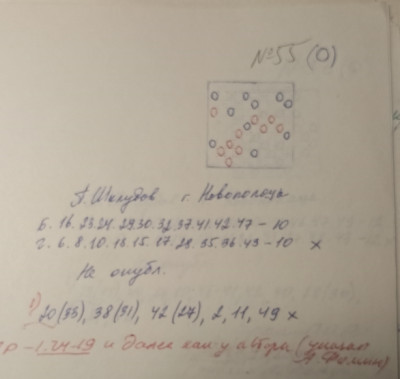 №55 (О)
П. Шклудов г. Новополоцк
Б. 16. 23. 24. 29. 30. 32. 37. 41. 42. 47 – 10
Ч. 6. 8. 10. 13. 15. 17. 29. 35. 36. 43 – 10 x
Не опубл.
1) 20 (33), 38 (31), 42 (27), 2, 11, 49 x
– 1. 24-19 и далее как у автора (указал